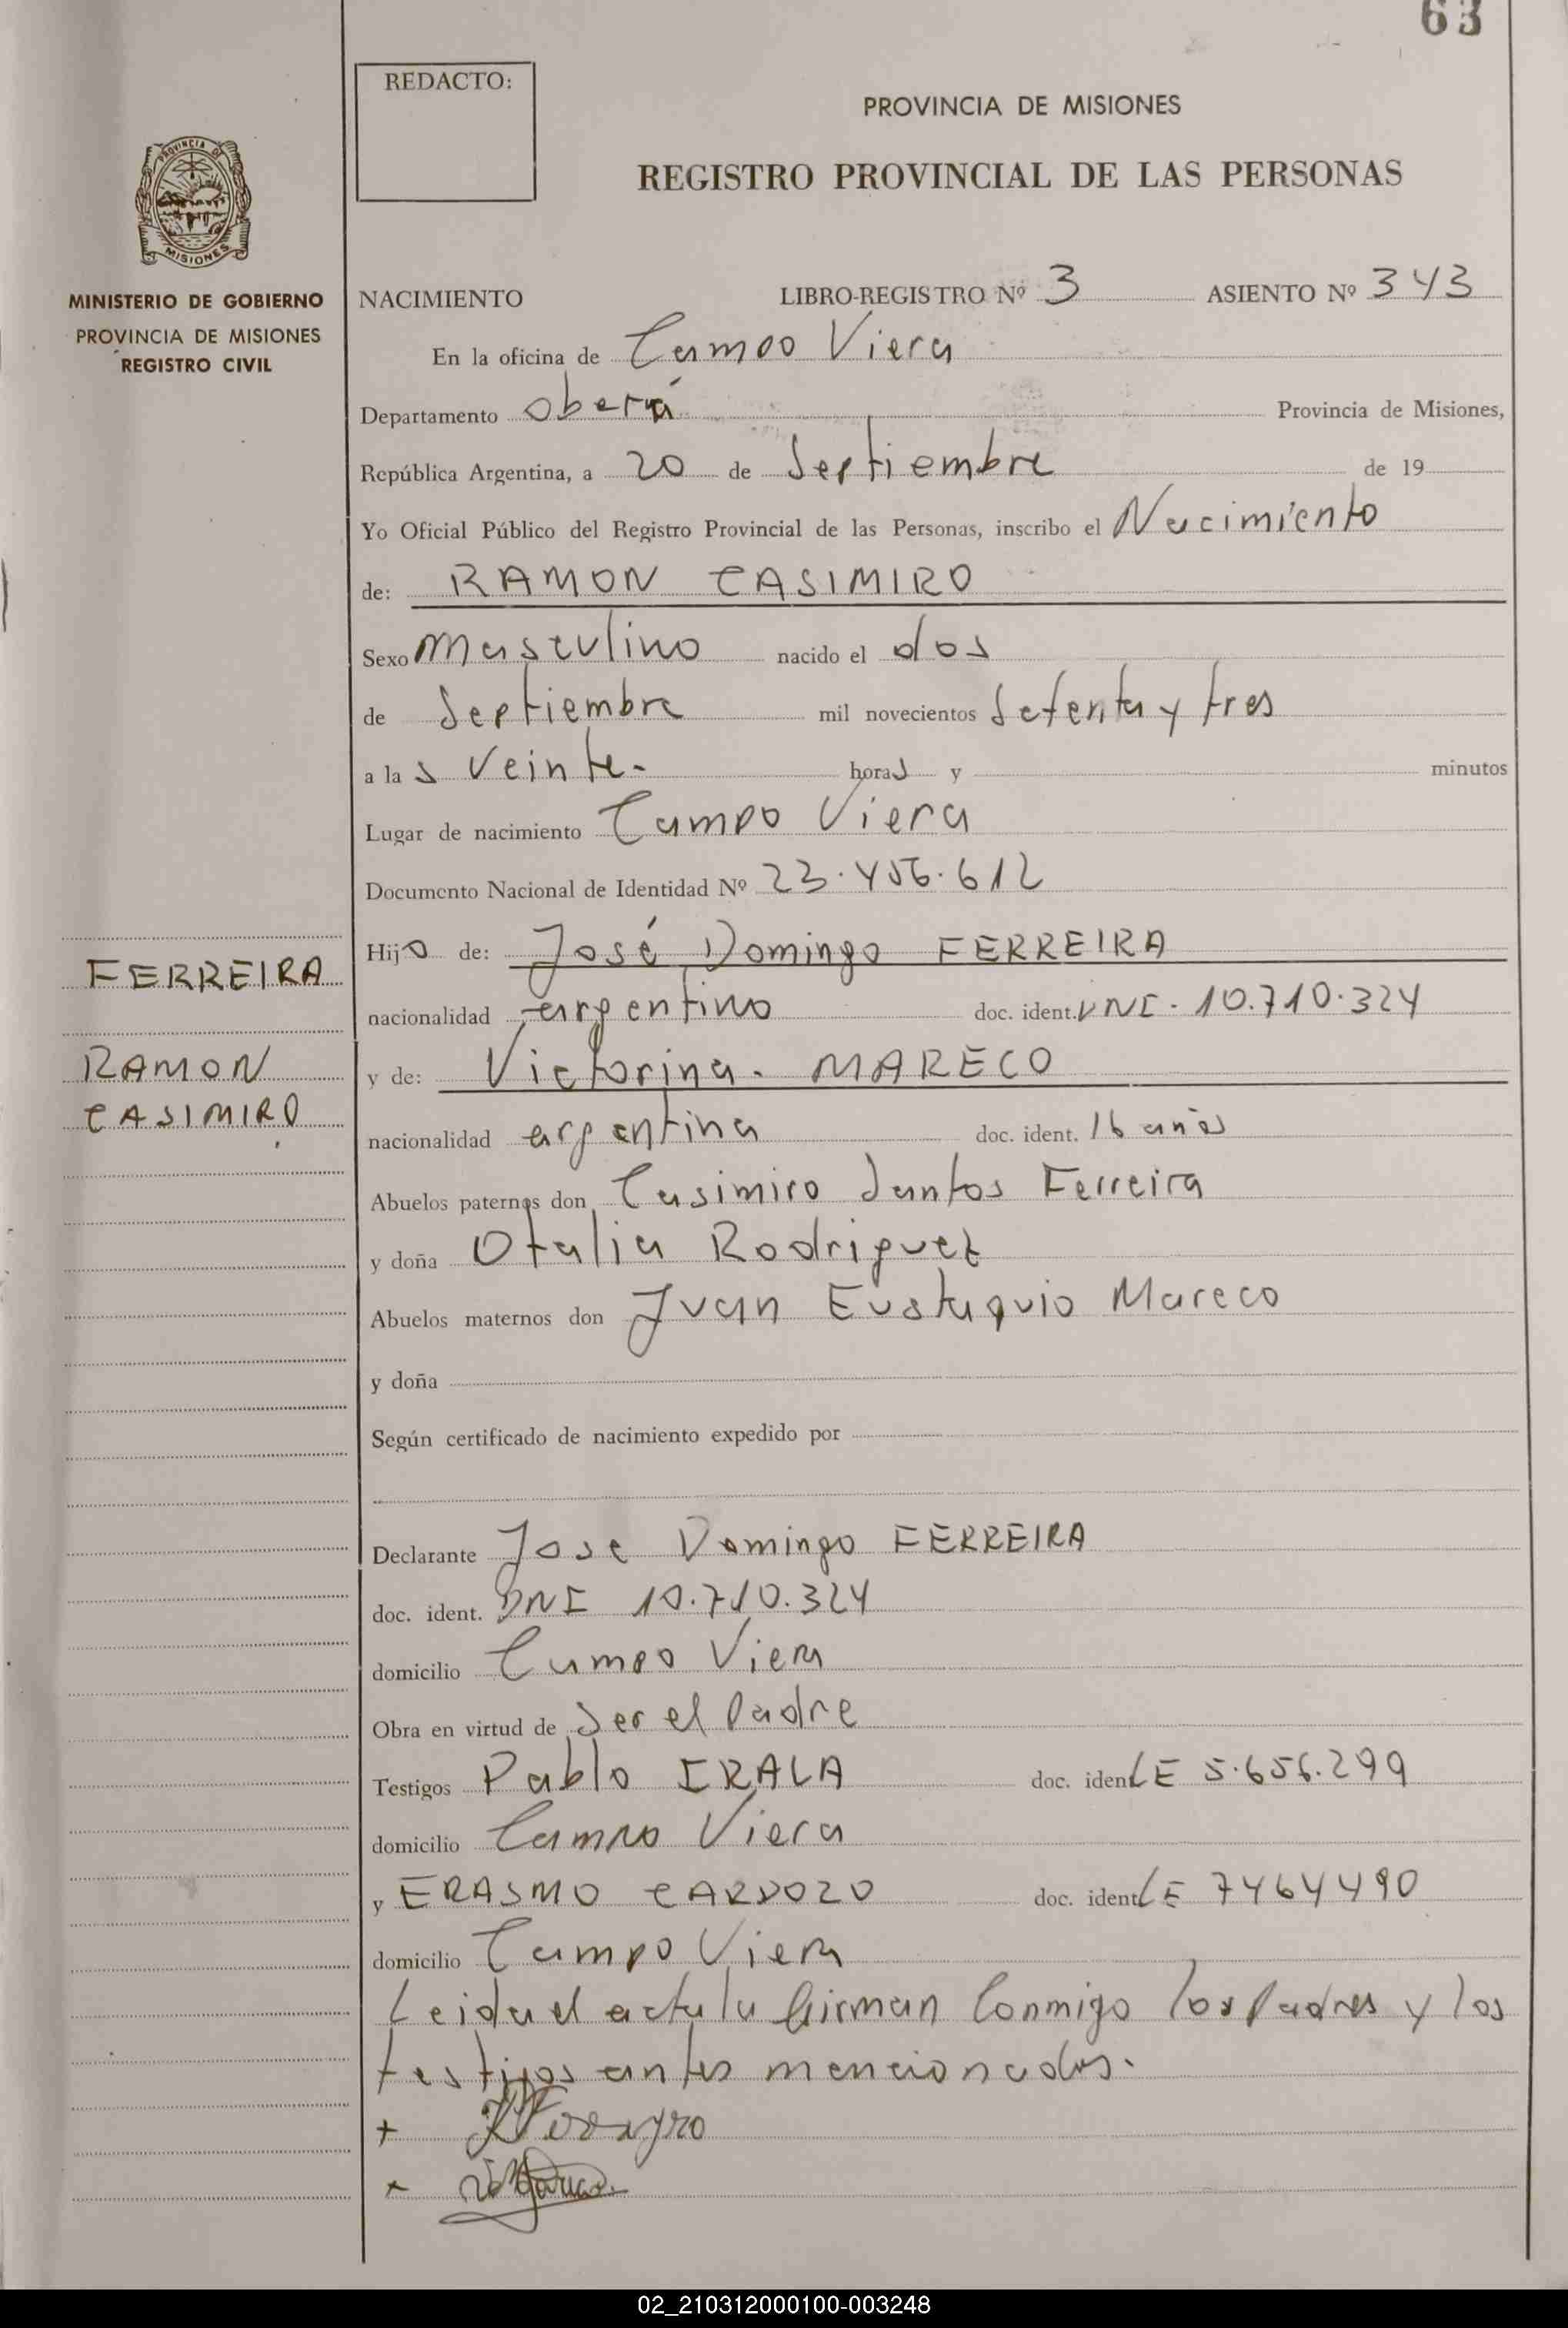 63
REDACTO:
PROVINCIA DE MISIONES
REGISTRO PROVINCIAL DE LAS PERSONAS
PROVINCIA DE
MISIONES
MINISTERIO DE GOBIERNO
PROVINCIA DE MISIONES
REGISTRO CIVIL
NACIMIENTO LIBRO-REGISTRO Nº 3 ASIENTO Nº 343
En la oficina de Campo Viera
Departamento oberá Provincia de Misiones,
República Argentina, a 20 de Septiembre de 19
Yo Oficial Público del Registro Provincial de las Personas, inscribo el Nacimiento
de: RAMON CASIMIRO
Sexo masculino nacido el dos
de Septiembre mil novecientos Setenta y tres
a la s veinte.- horas y minutos
Lugar de nacimiento Campo Viera
Documento Nacional de Identidad Nº 23.456.612
Hijo de: José Domingo FERREIRA
nacionalidad argentino doc. ident. DNI - 10.710.324
y de: Victorina. MARECO
nacionalidad argentina doc. ident. 16 años
Abuelos paternos don Casimiro Santos Ferreira
y doña Otalia Rodriguez
Abuelos maternos don Juan Eustaquio Mareco
y doña
Según certificado de nacimiento expedido por
Declarante Jose Domingo FERREIRA
doc. ident. DNI 10.710.324
domicilio Campo Viera
Obra en virtud de Ser el Padre
Testigos Pablo IRALA doc. iden LE 5.656.299
domicilio Campo Viera
y ERASMO CARDOZO doc. ident LE 7464490
domicilio Campo Viera
Leida el acta la firman Conmigo los Padres y los
testigos antes mencionados.
FERREIRA
RAMON
CASIMIRO
02_210312000100-003248